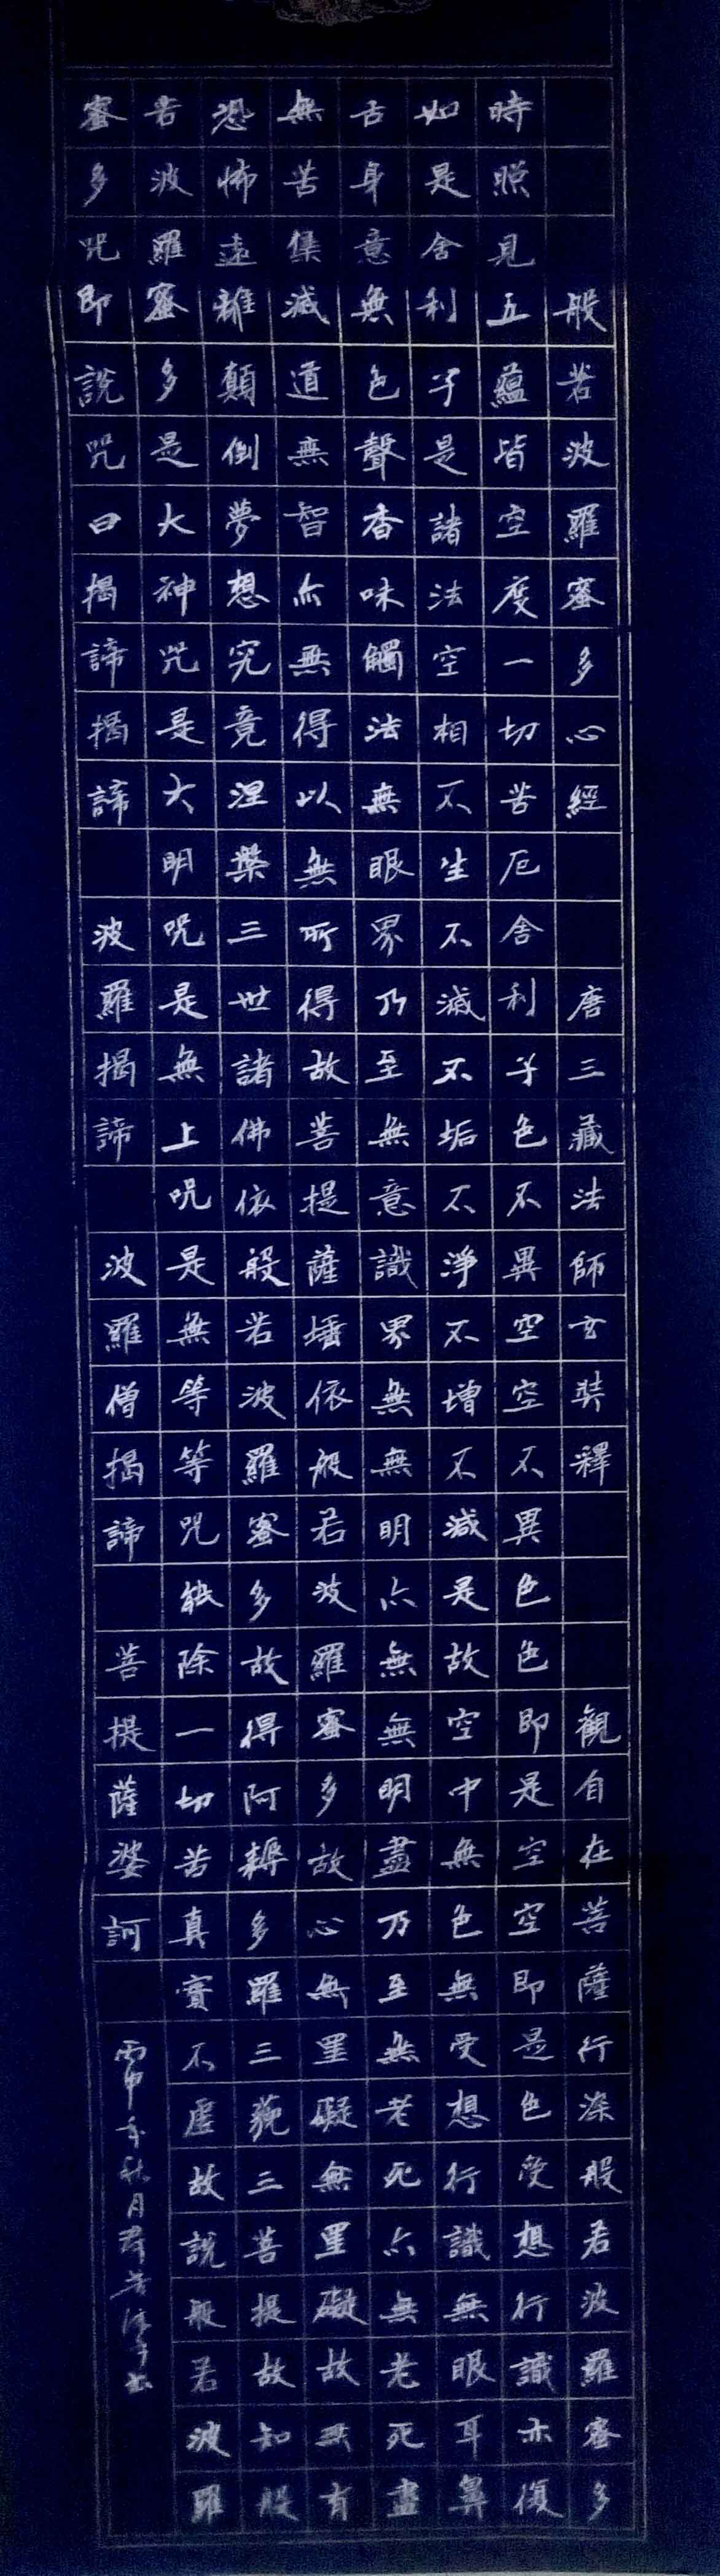 般若波羅蜜多心經 唐三藏法師玄奘釋 觀自在菩薩行深般若波羅蜜多
時照見五蘊皆空度一切苦厄舍利子色不異空空不異色色即是空空即是色受想行識亦復
如是舍利子是諸法空相不生不滅不垢不淨不增不減是故空中無色無受想行識無眼耳鼻
舌身意無色聲香味觸法無眼界乃至無意識界無無明亦無無明盡乃至無老死亦無老死盡
無苦集滅道無智亦無得以無所得故菩提薩埵依般若波羅蜜多故心無罣礙無罣礙故無有
恐怖遠離顛倒夢想究竟涅槃三世諸佛依般若波羅蜜多故得阿耨多羅三藐三菩提故知般
若波羅蜜多是大神咒是大明咒是無上咒是無等等咒能除一切苦真實不虛故說般若波羅
蜜多咒即說咒曰揭諦揭諦 波羅揭諦 波羅僧揭諦 菩提薩婆訶
丙申年秋月